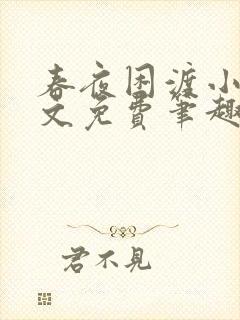 春夜困渡小
文免费笔趣
君不见